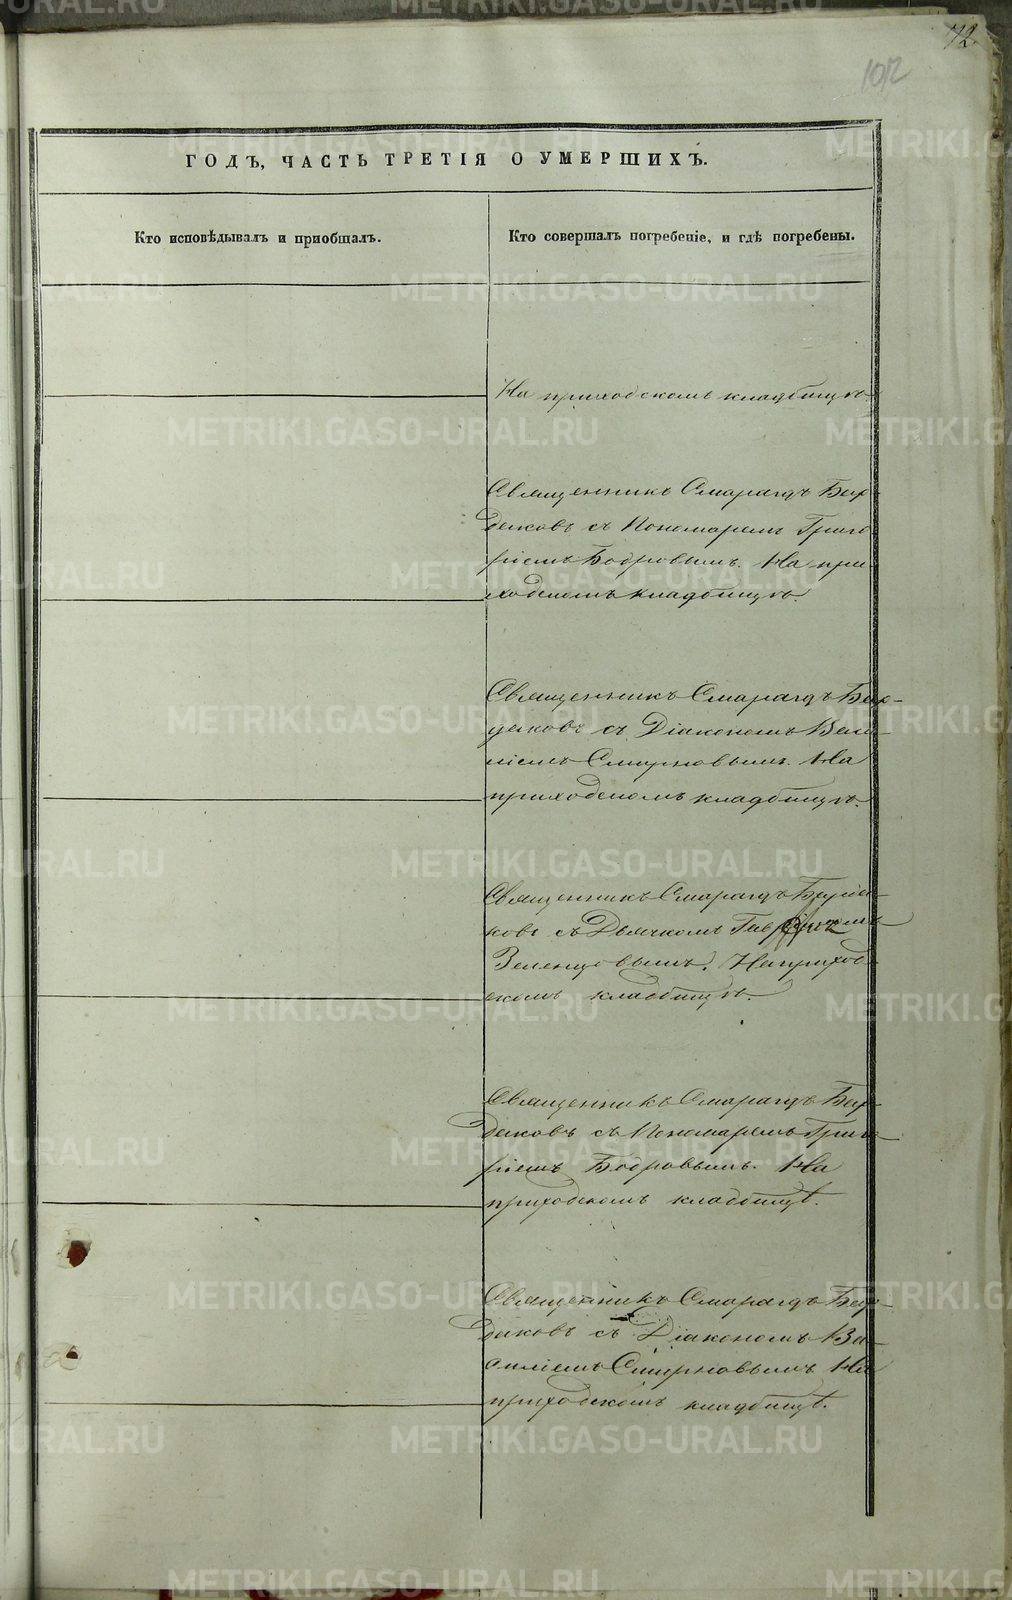 72
102
ГОДЪ, ЧАСТЬ ТРЕТІЯ О УМЕРШИХЪ.
Кто исповѣдывалъ и приобщалъ.
Кто совершалъ погребеніе, и гдѣ погребены.
На приходскомъ кладбищѣ
Священникъ Смарагдъ Бир-
дюковъ съ Пономаремъ Григо
ріемъ Бобровымъ. На при-
ходскомъ кладбищѣ.
Священникъ Смарагдъ
съ Діакономъ Васи-
ліемъ Смирновымъ. На
приходскомъ кладбищѣ.
Священникъ Смарагдъ
ковъ съ Дьячкомъ
Зеленцовымъ. На приход-
скомъ кладбищѣ.
Священникъ Смарагдъ
съ Пономаремъ Григо-
ріемъ Бобровымъ. На
приходскомъ кладбищѣ.
Священникъ Смарагдъ
съ Діакономъ Ва-
силіемъ Смирновымъ На
приходскомъ кладбищѣ.
METRIKI.GASO-URAL.RU